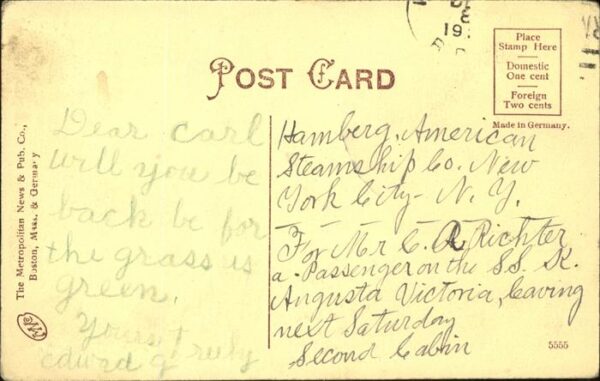 POST CARD
Place
Stamp Here
Domestic
One cent
Foreign
Two cents
Made in Germany.
The Metropolitan News & Pub. Co.,
Boston, Mass. & Germany
Dear Carl
will you be
back be for
the grass is
green.
Yours truly
Edward G.
Hamberg, American
Steamship Co. New
York City - N. Y.
For Mr C. A Richter
a - Passenger on the SS. K.
Augusta Victoria, leaving
next Saturday
Second Cabin
5555
8
19